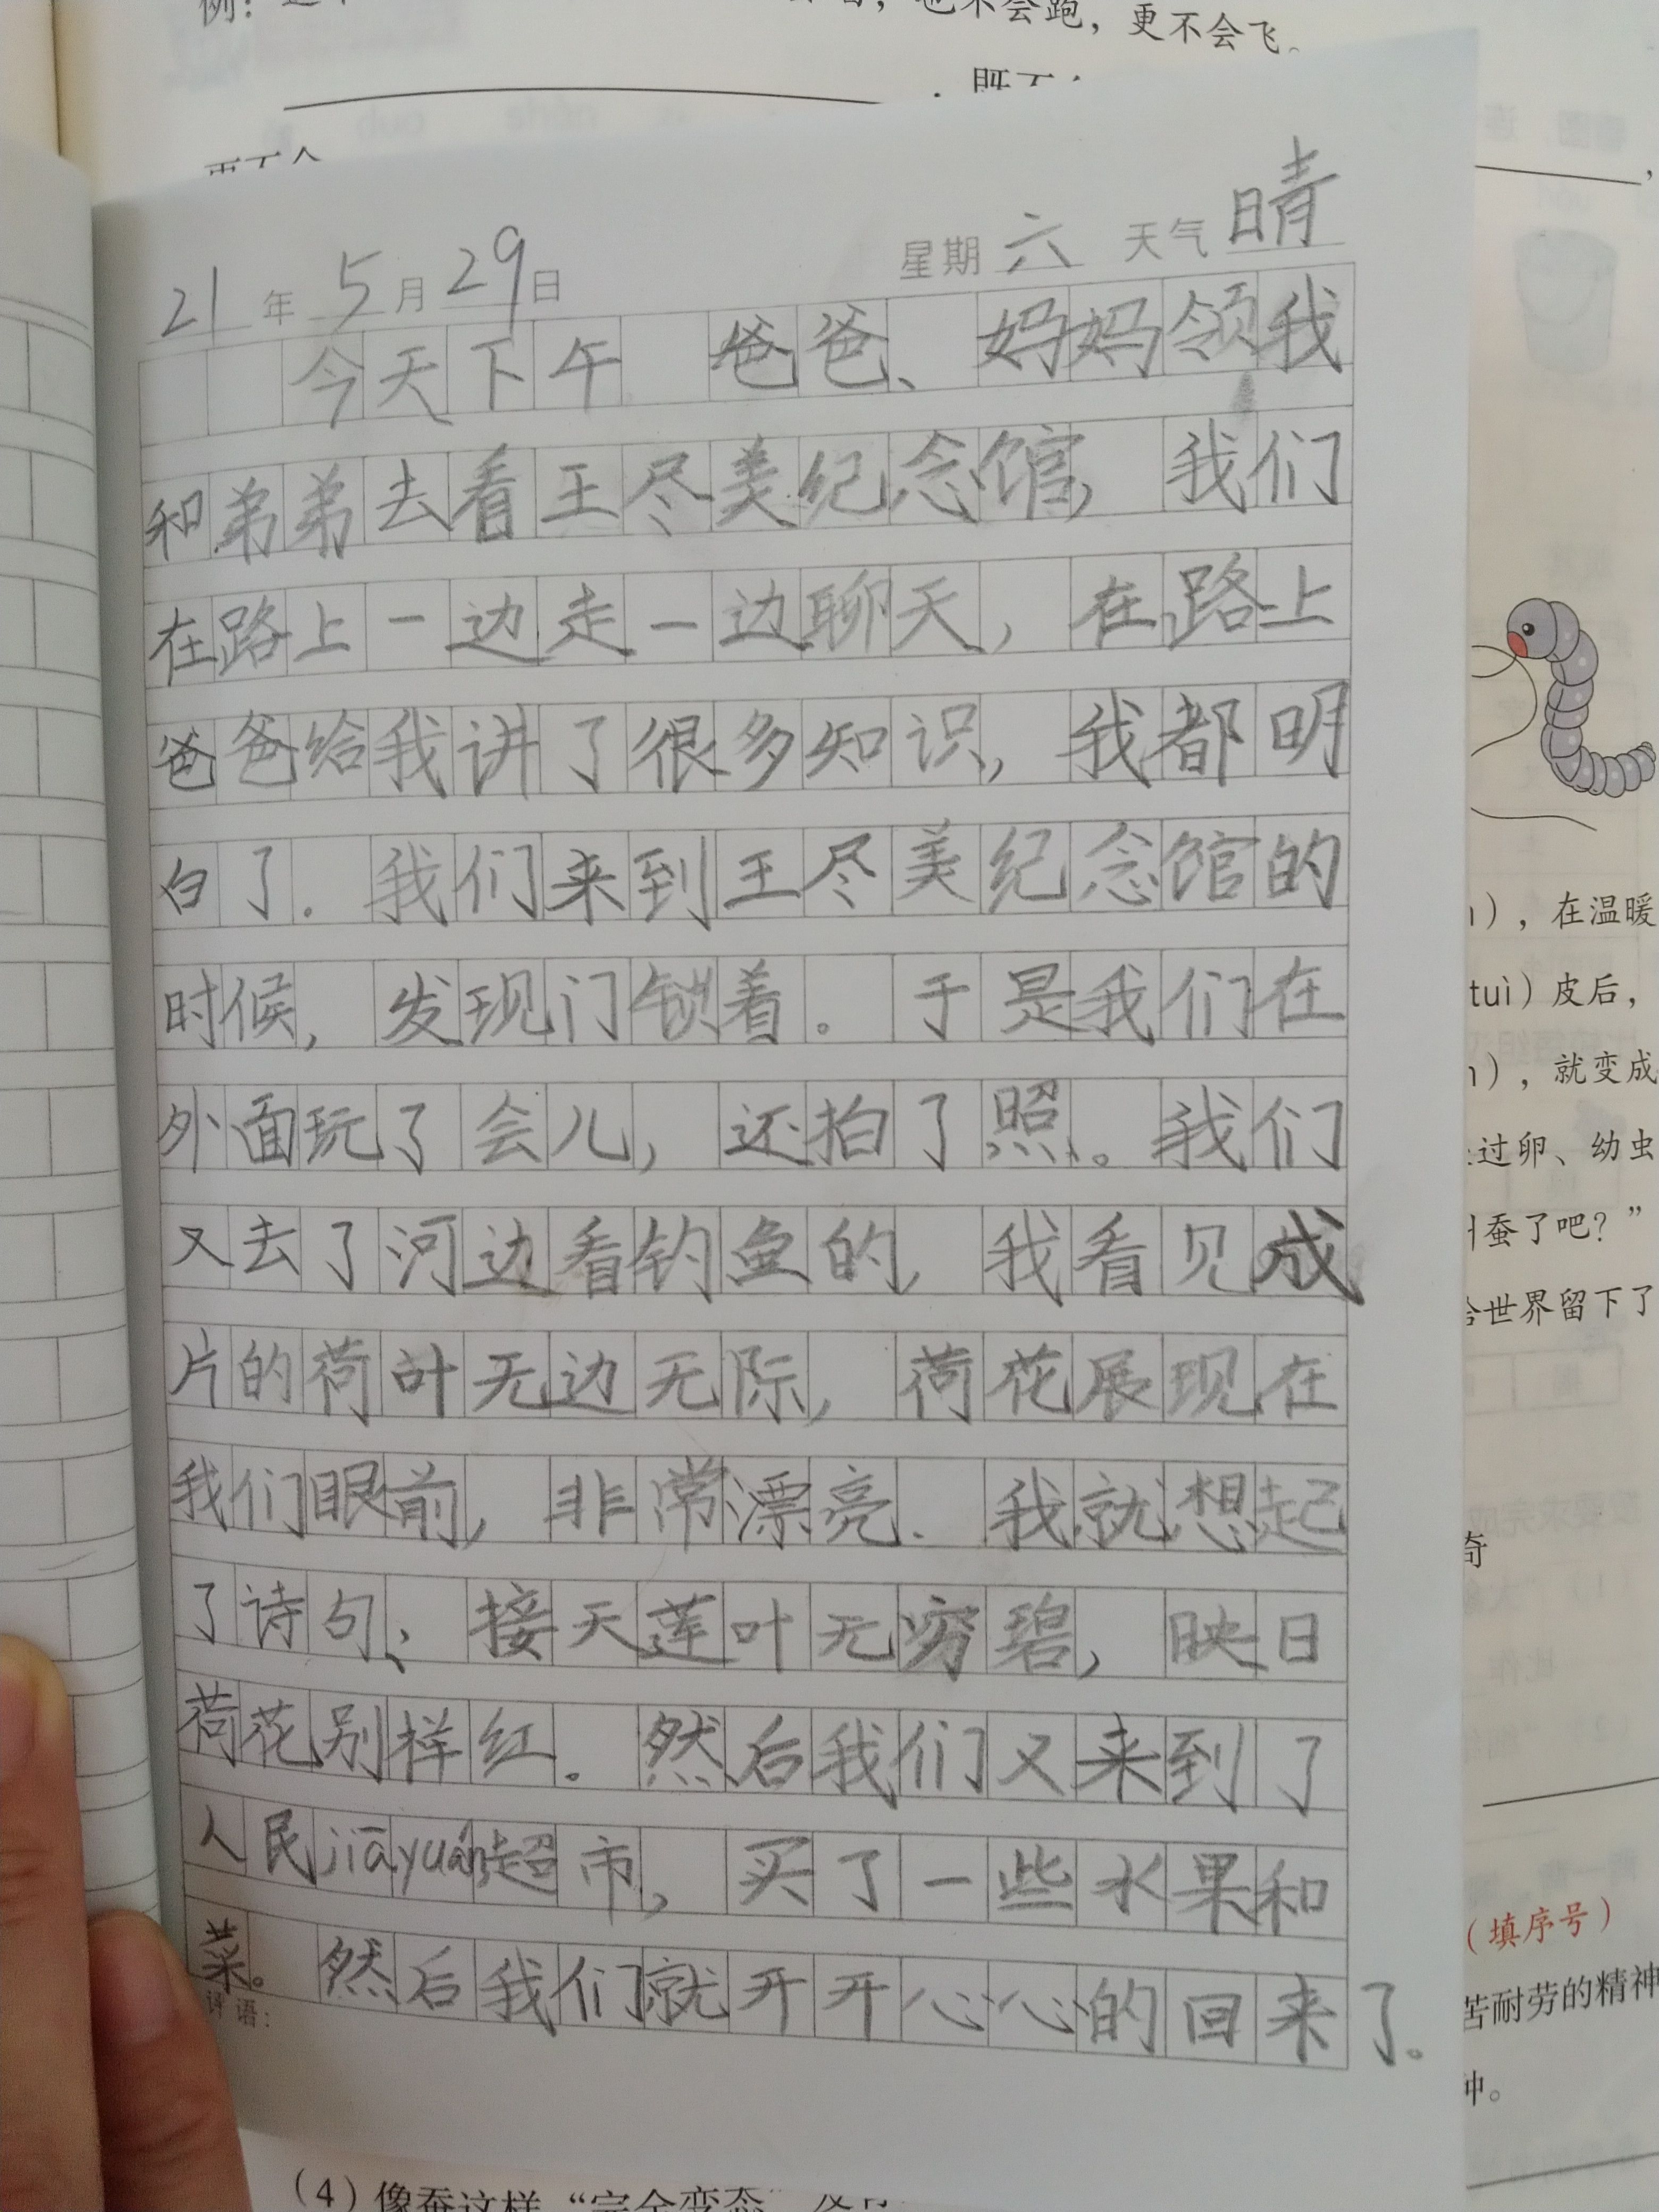 也不会跑，更不会飞。
21年5月29日 星期六 天气晴
今天下午 爸爸、妈妈领我
和弟弟去看王尽美纪念馆，我们
在路上一边走一边聊天，在路上
爸爸给我讲了很多知识，我都明
白了.我们来到王尽美纪念馆的
时候，发现门锁着。于是我们在
外面玩了会儿，还拍了照。我们
又去了河边看钓鱼的，我看见成
片的荷叶无边无际，荷花展现在
我们眼前，非常漂亮.我就想起
了诗句、接天莲叶无穷碧，映日
荷花别样红。然后我们又来到了
人民jiāyuán超市，买了一些水果和
菜。然后我们就开开心心的回来了。
评语：
），在温暖
tuì）皮后，
），就变成
过卵、幼虫
蚕了吧？”
世界留下了
奇
（填序号）
苦耐劳的精神
种。
（4）像蚕这样“完全变态”